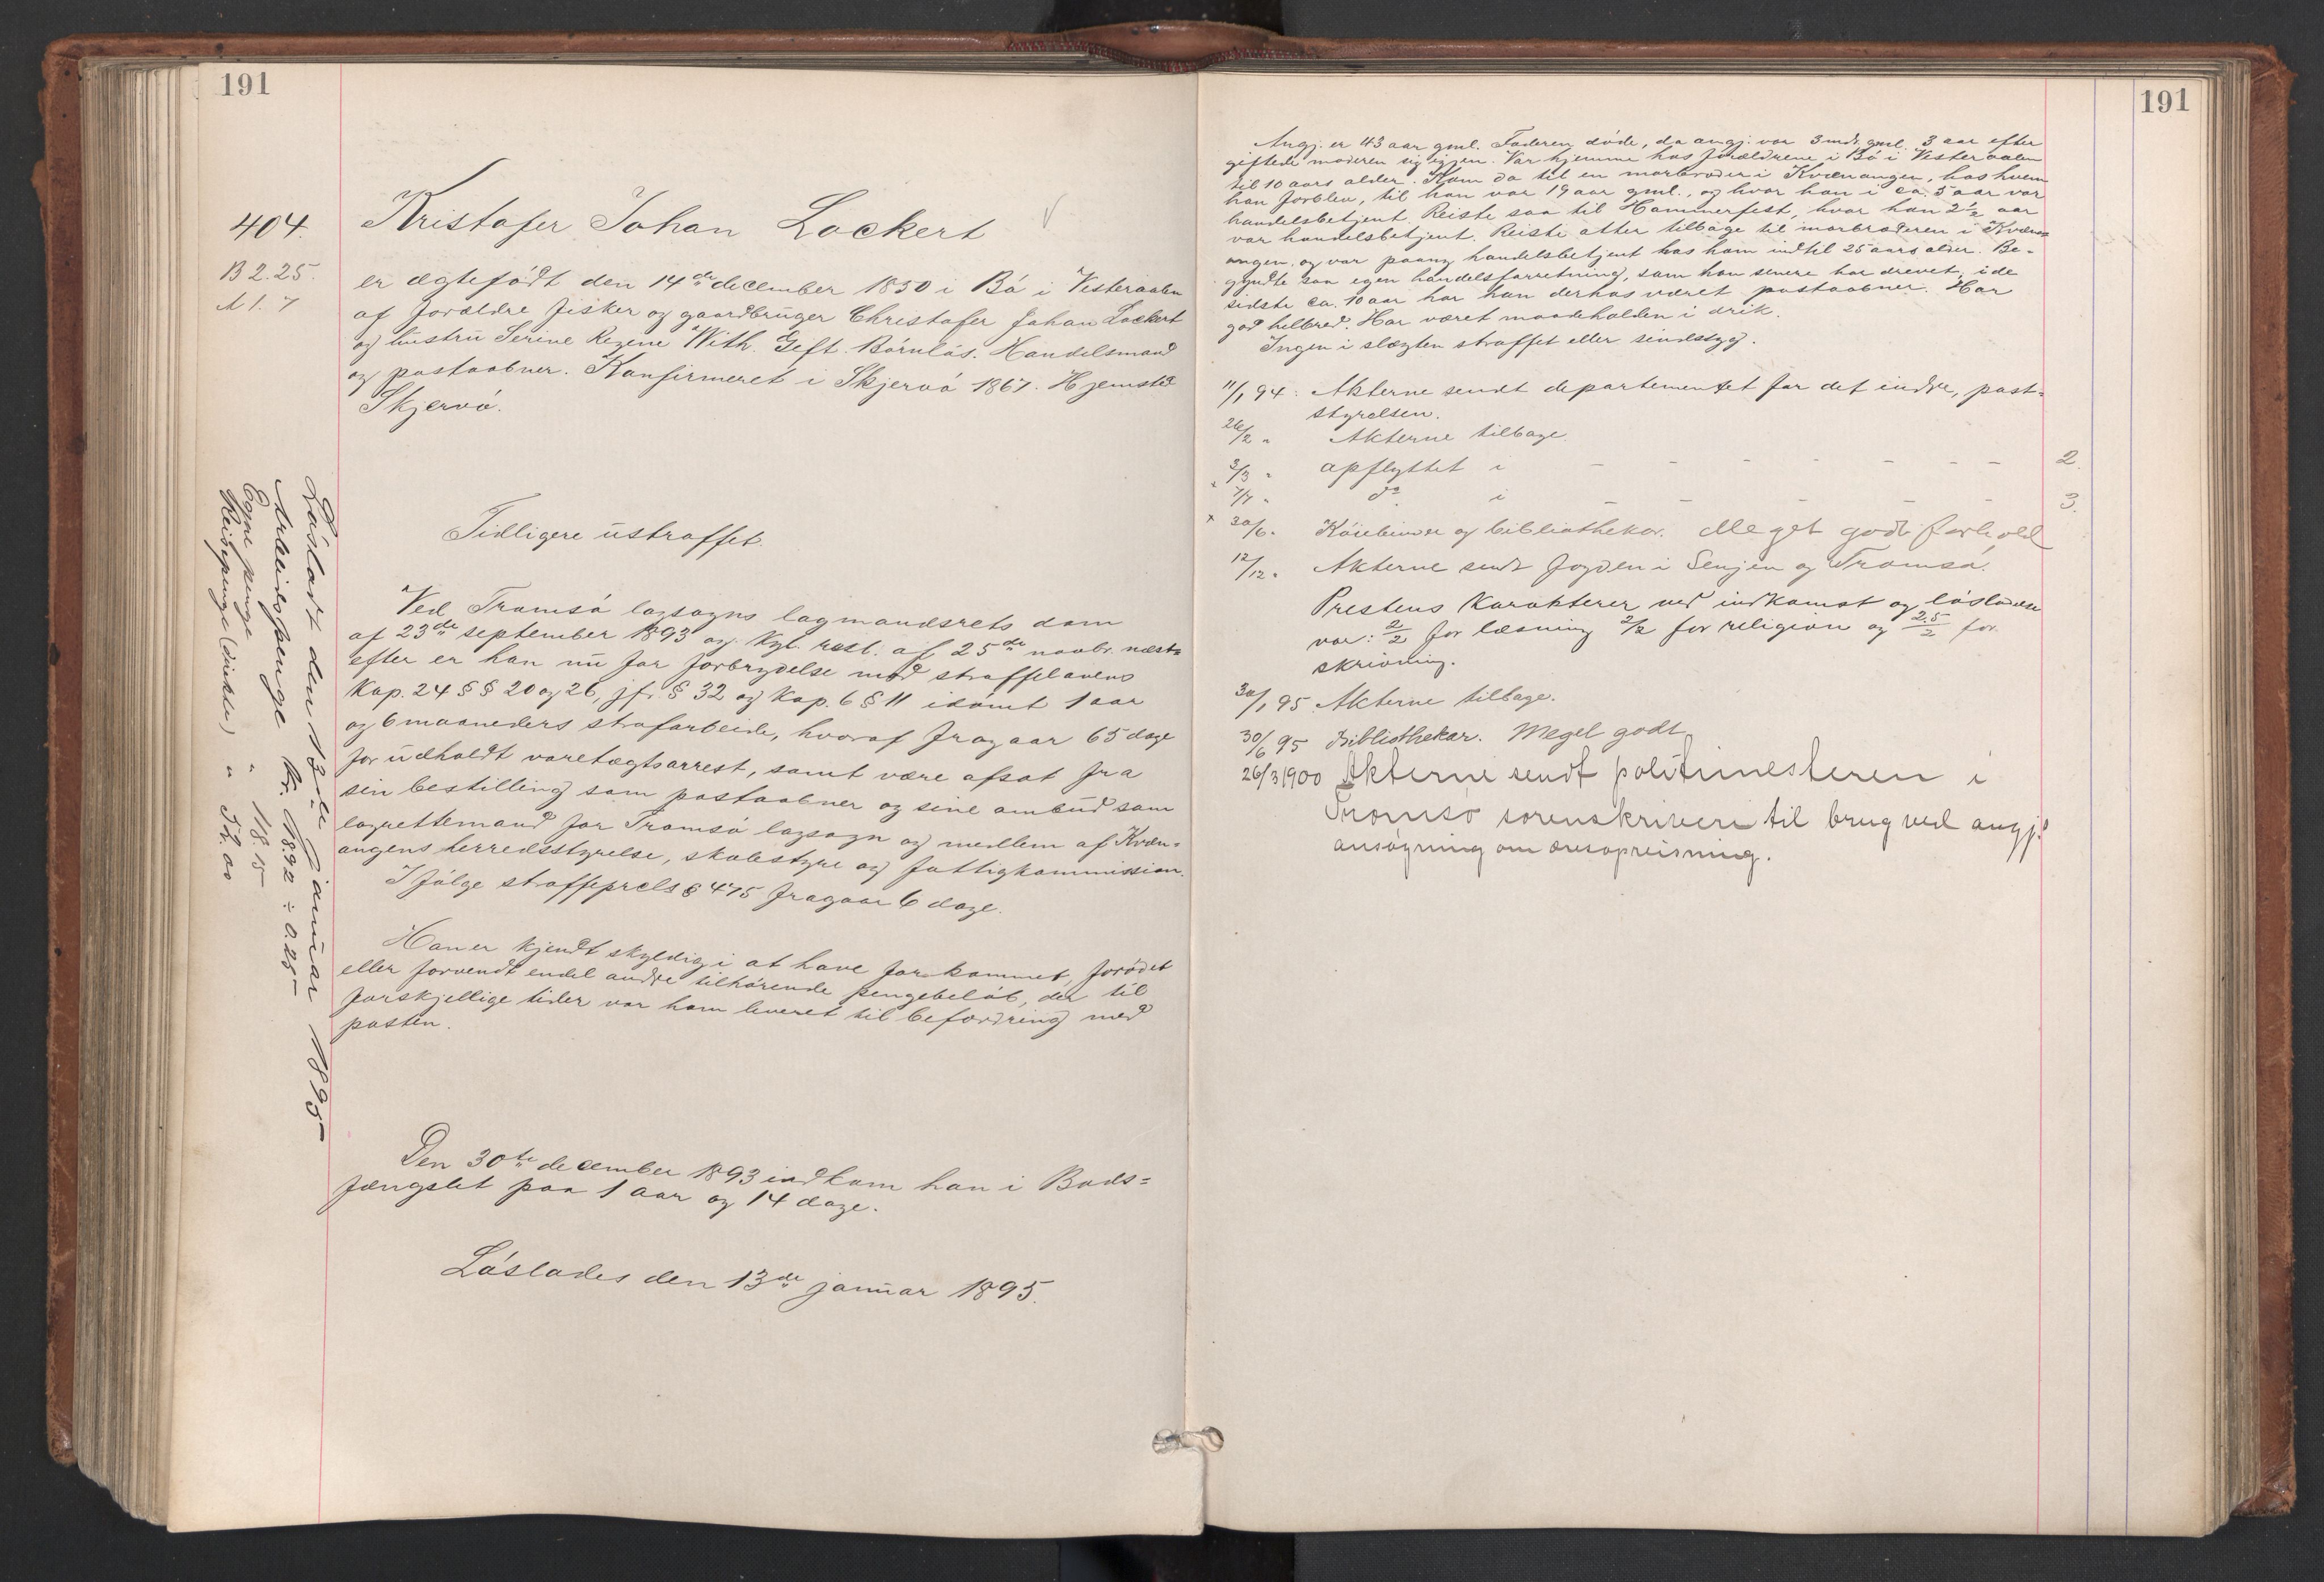 191
404.
B 2.25.
A 1. 7
Kristofer Johan Lockert
er ægtefødt den 14de december 1850 i Bø i Vesteraalen
af forældre fisker og gaardbruger Christofer Johan Lockert
og hustru Serine Regine With. Gift. Børnløs. Handelsmand
og postaabner. Konfirmeret i Skjervø 1867. Hjemsted
Skjervø.
Tidligere ustraffet.
Ved Tromsø lagsogns lagmandsrets dom
af 23de september 1893 og kgl. resl. af 25de novbr. næst-
efter er han nu for forbrydelse mod straffelovens
Kap. 24 §§ 20 og 26, jfr. § 32 og Kap. 6 § 11 idømt 1 aar
og 6 maaneders strafarbeide, hvoraf fragaar 65 dage
for udholdt varetægtsarrest, samt være afsat fra
sin bestilling som postaabner og sine ombud som
lagrettemand for Tromsø lagsogn og medlem af Kvæn-
angens herredsstyrelse, skolestyre og fattigkommission.
I følge straffeprcls § 475 fragaar 6 dage.
Han er kjendt skyldig i at have forkommet, forødet
eller forvendt endel andre tilhørende pengebeløb, der til
forskjellige tider var ham leveret til befordring med
posten.
Den 30te december 1893 indkom han i Bods=
fængslet paa 1 aar og 14 dage.
Løslades den 13de januar 1895.
Løsladt den 13de januar 1895
Arbeidspenge kr. 18.92 ÷ 0.25.
Egne penge " 118.15
Reisepenge (direkte) "
191
Angj. er 43 aar gml. Faderen døde, da angj. var 3 mdr. gml. 3 aar efter
giftede moderen sig igjen. Var hjemme hos forældrene i Bø i Vesteraalen
til 10 aars alder. Kom da til en morbroder i Kvænangen, hos hvem
han forblev, til han var 19 aar gml., og hvor han i ca. 5 aar var
handelsbetjent. Reiste saa til Hammerfest, hvor han 2½ aar
var handelsbetjent. Reiste atter tilbage til morbroderen i Kvæn=
angen, og var paany handelsbetjent hos ham indtil 25 aars alder. Be-
gyndte saa egen handelsforretning, som han senere har drevet; i de
sidste ca. 10 aar har han derhos været postaabner. Har
god helbred. Har været maadeholden i drik.
Ingen i slægten straffet eller sindssyg.
11/1 94. Akterne sendt departementet for det indre, post-
styrelsen.
26/2 " Akterne tilbage.
3/3 " opflyttet i - - - - - - - 2.
7/7 " do i - - - - - 3.
x 30/6 " og bibliothekar. Meget godt forhold
12/12 " Akterne sendt fogden i Senjen og Tromsø.
Prestens Karakterer ved indkomst og løsladelse
var: 2/2 for læsning 2/2 for religion og 2.5/2 for
skrivning.
30/1 95 Akterne tilbage.
30/6 95 Bibliothekar. Meget godt
26/3 1900 Akterne sendt politimesteren i
Tromsø sorenskriveri til brug ved angj.s
ansøgning om æresopreisning.